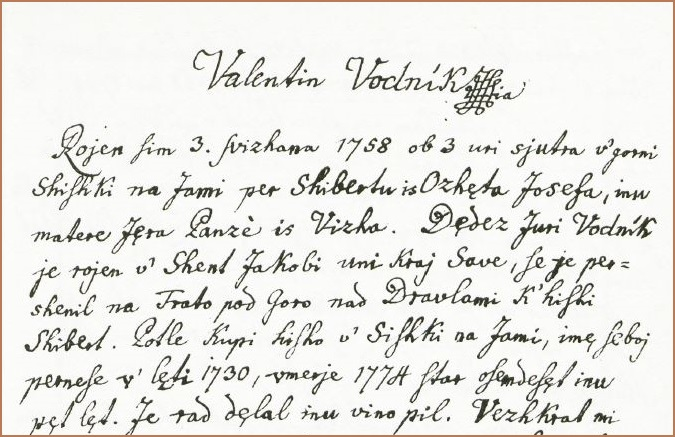 Valentin Vodnik
Rojen sim 3. svizhana 1758 ob 3 uri sjutra v' gorni
Shishki na Jami per Shibertu is Ozhęta Josefa, inu
matere Jęra Panzè is Vizha. Dędez Juri Vodnik
je rojen v' Shent Jakobi uni kraj Save, se je per=
shenil na Trato pod Goro nad Dravlami k' hishi
Shibert. Potle kupi hisho v' Sishki na Jami, imę sęboj
pernese v' lęti 1730, vmerje 1774 star osemdesęt inu
pęt lęt. Je rad dęlal inu vino pil. Vezhkrat mi